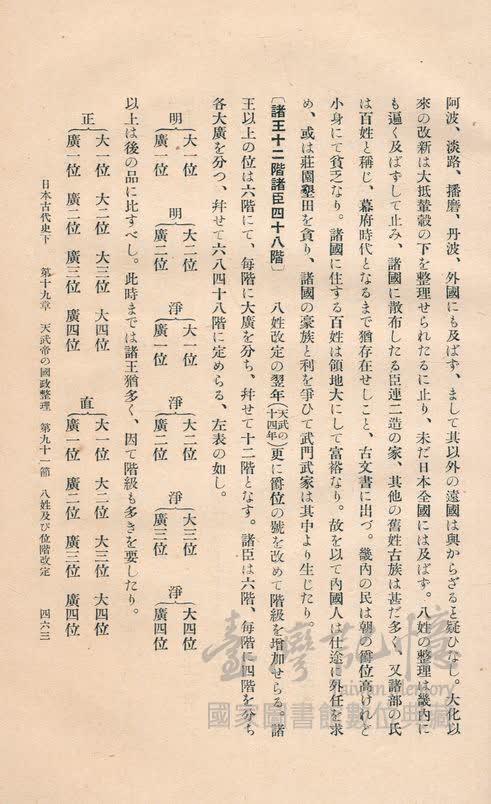 阿波、淡路、播磨、丹波、外國にも及ばず、まして其以外の遠國は與からざると疑ひなし。大化以
來の改新は大抵輦轂の下を整理せられたるに止り、未だ日本全國には及ばず。八姓の整理は畿内に
も遍く及ばずして止み、諸國に散布したる臣連二造の家、其他の舊姓古族は甚だ多く、又諸部の氏
は百姓と稱じ、幕府時代となるまで猶存在せしこと、古文書に出づ。畿內の民は朝の爵位高けれど
小身にて貧乏なり。諸國に住する百姓は領地大にして富裕なり。故を以て內國人は仕途に外任を求
め、或は莊園墾田を貪り、諸國の豪族と利を爭ひて武門武家は其中より生じたり。
〔諸王十二階諸臣四十八階〕 八姓改定の翌年(天武の十四年)更に爵位の號を改めて階級を增加せらる。諸
王以上の位は六階にて、每階に大廣を分ち、幷せて十二階となす。諸臣は六階、每階に四階を分ち
各大廣を分つ、幷せて六八四十八階に定めらる、左表の如し。
明 大一位 廣一位
明 大二位 廣二位
淨 大一位 廣一位
淨 大二位 廣二位
淨 大三位 廣三位
淨 大四位 廣四位
以上は後の品に比すべし。此時までは諸王猶多く、因て階級も多きを要したり。
正 大一位 大二位 大三位 大四位
廣一位 廣二位 廣三位 廣四位
直 大一位 大二位 大三位 大四位
廣一位 廣二位 廣三位 廣四位
日本古代史下 第十九章 天武帝の國政整理 第九十一節 八姓及び位階改定 四六三
臺灣記憶
Taiwan Memory
國家圖書館數位典藏